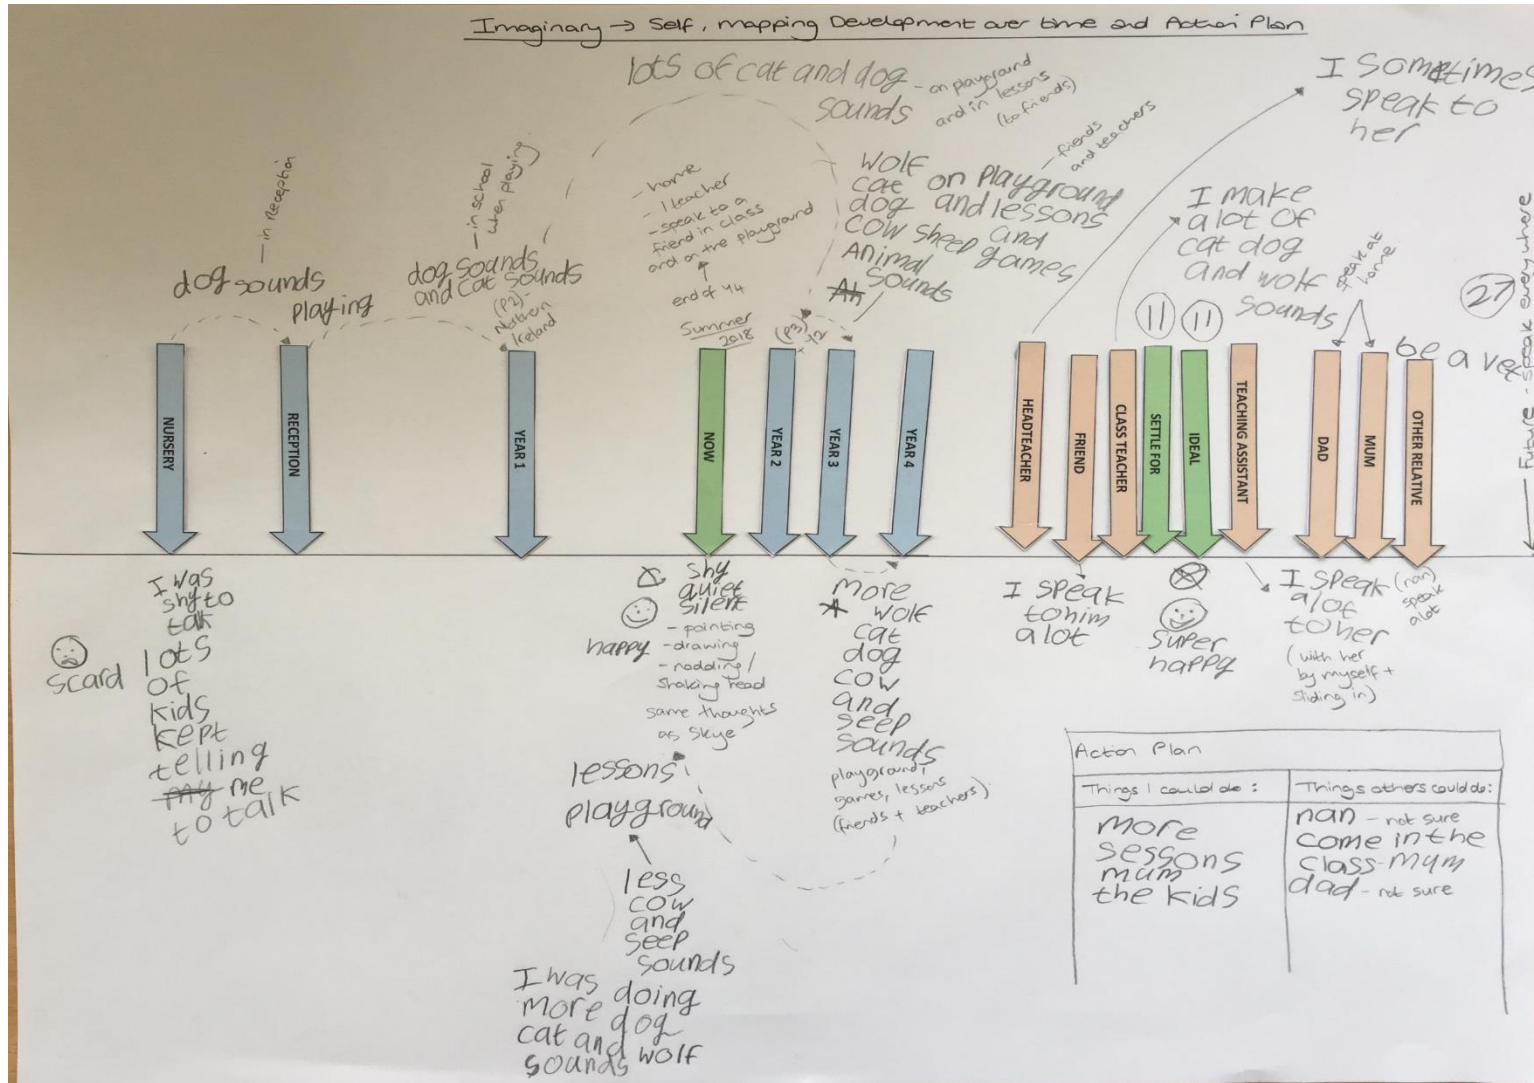 Imaginary → Self, mapping Development over time and Action Plan
lots of cat and dog
sounds
- on playground
and in lessons
(to friends)
I sometimes
speak to
her
- in Reception
dog sounds
playing
- in school
when playing
dog sounds
and cat sounds
(P2)-
Northern
Ireland
- home
- 1 teacher
- speak to a
friend in class
and on the playground
end of Y4
Summer
2018
(P3)
Y2
wolf
cat on playground
dog and lessons
cow sheep and
Animal games
sounds
Ah
- friends
and teachers
I make
a lot of
cat dog
and wolf
sounds
speak at
home
11
11
27
be a vet
Future - speak everywhere
NURSERY
RECEPTION
YEAR 1
NOW
YEAR 2
YEAR 3
YEAR 4
HEADTEACHER
FRIEND
CLASS TEACHER
SETTLE FOR
IDEAL
TEACHING ASSISTANT
DAD
MUM
OTHER RELATIVE
I was
shy to
talk
lots
of
kids
kept
telling
my me
to talk
scard
shy
quiet
silent
happy
- pointing
- drawing
- nodding /
shaking head
same thoughts
as Skye
lessons
playground
less
cow
and
seep
sounds
I was doing
more dog
cat and wolf
sounds
more
wolf
cat
dog
cow
and
seep
sounds
playground,
games, lessons
(friends + teachers)
I speak
to him
a lot
super
happy
I speak
a lot
to her
(with her
by myself +
sliding in)
(nan)
speak
alot
Action Plan
Things I could do:
more
sessons
mum
the kids
Things others could do:
nan - not sure
come in the
class-mum
dad - not sure